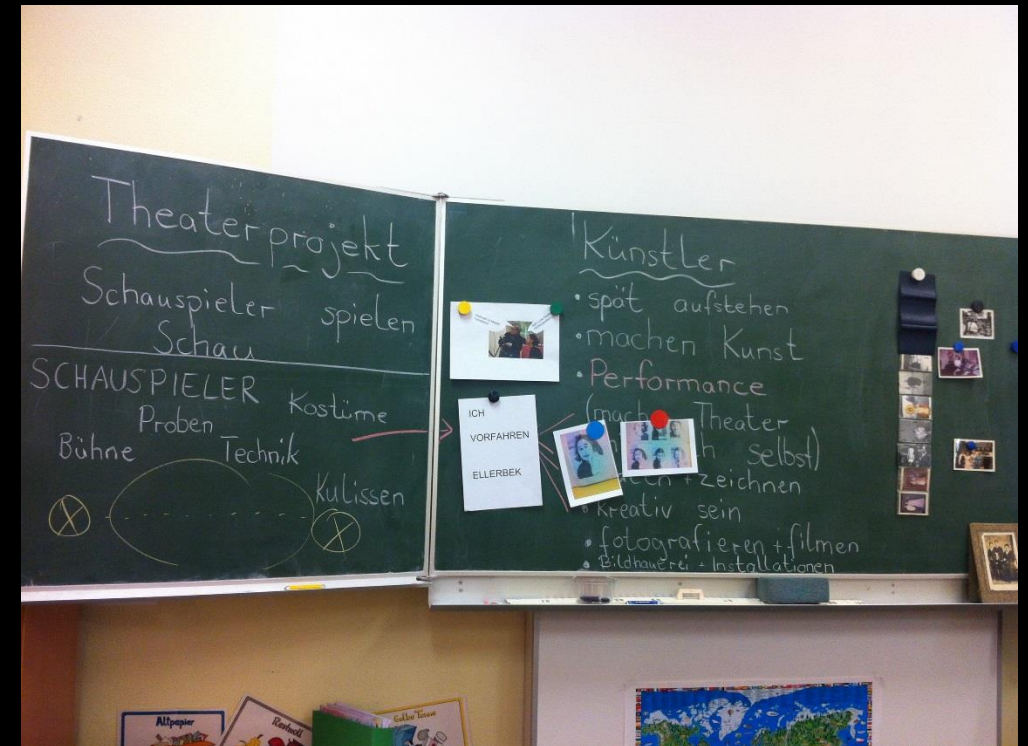 Theaterprojekt
Schauspieler spielen
Schau
SCHAUSPIELER
Kostüme
Proben
Bühne Technik
Kulissen
ICH
VORFAHREN
ELLERBEK
Künstler
• spät aufstehen
• machen Kunst
• Performance
Theater
selbst)
+ zeichnen
• kreativ sein
• fotografieren + filmen
• Bildhauerei + Installationen
Altpapier
Restmüll
Gelbe Tonne